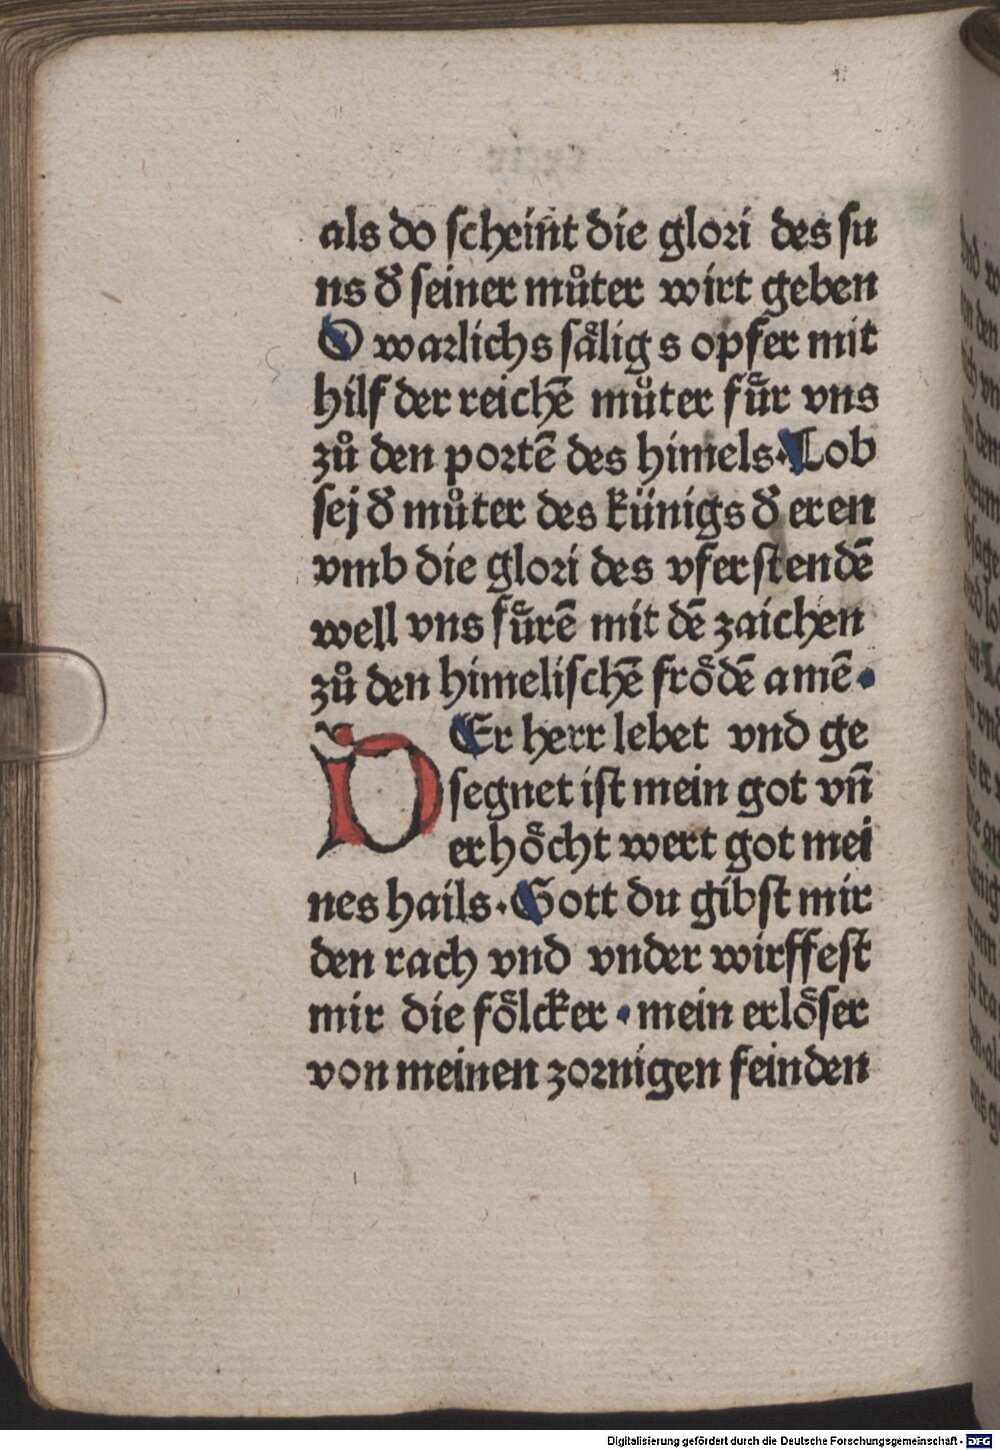 als do scheint die glori des su
ns đ seiner můter wirt geben
O warlichs sälig s opfer mit
hilf der reichē můter fůr vns
zů den portē des himels·Lob
sej đ můter des künigs đ eren
vmb die glori des vferstendē
well vns fůrē mit dē zaichen
zů den himelischē frödē amē·
DEr herr lebet vnd ge
segnet ist mein got vn̄
erhöcht wert got mei
nes hails·Gott du gibst mir
den rach vnd vnder wirffest
mir die fölcker·mein erlöser
von meinen zornigen feinden
Digitalisierung gefördert durch die Deutsche Forschungsgemeinschaft - DFG